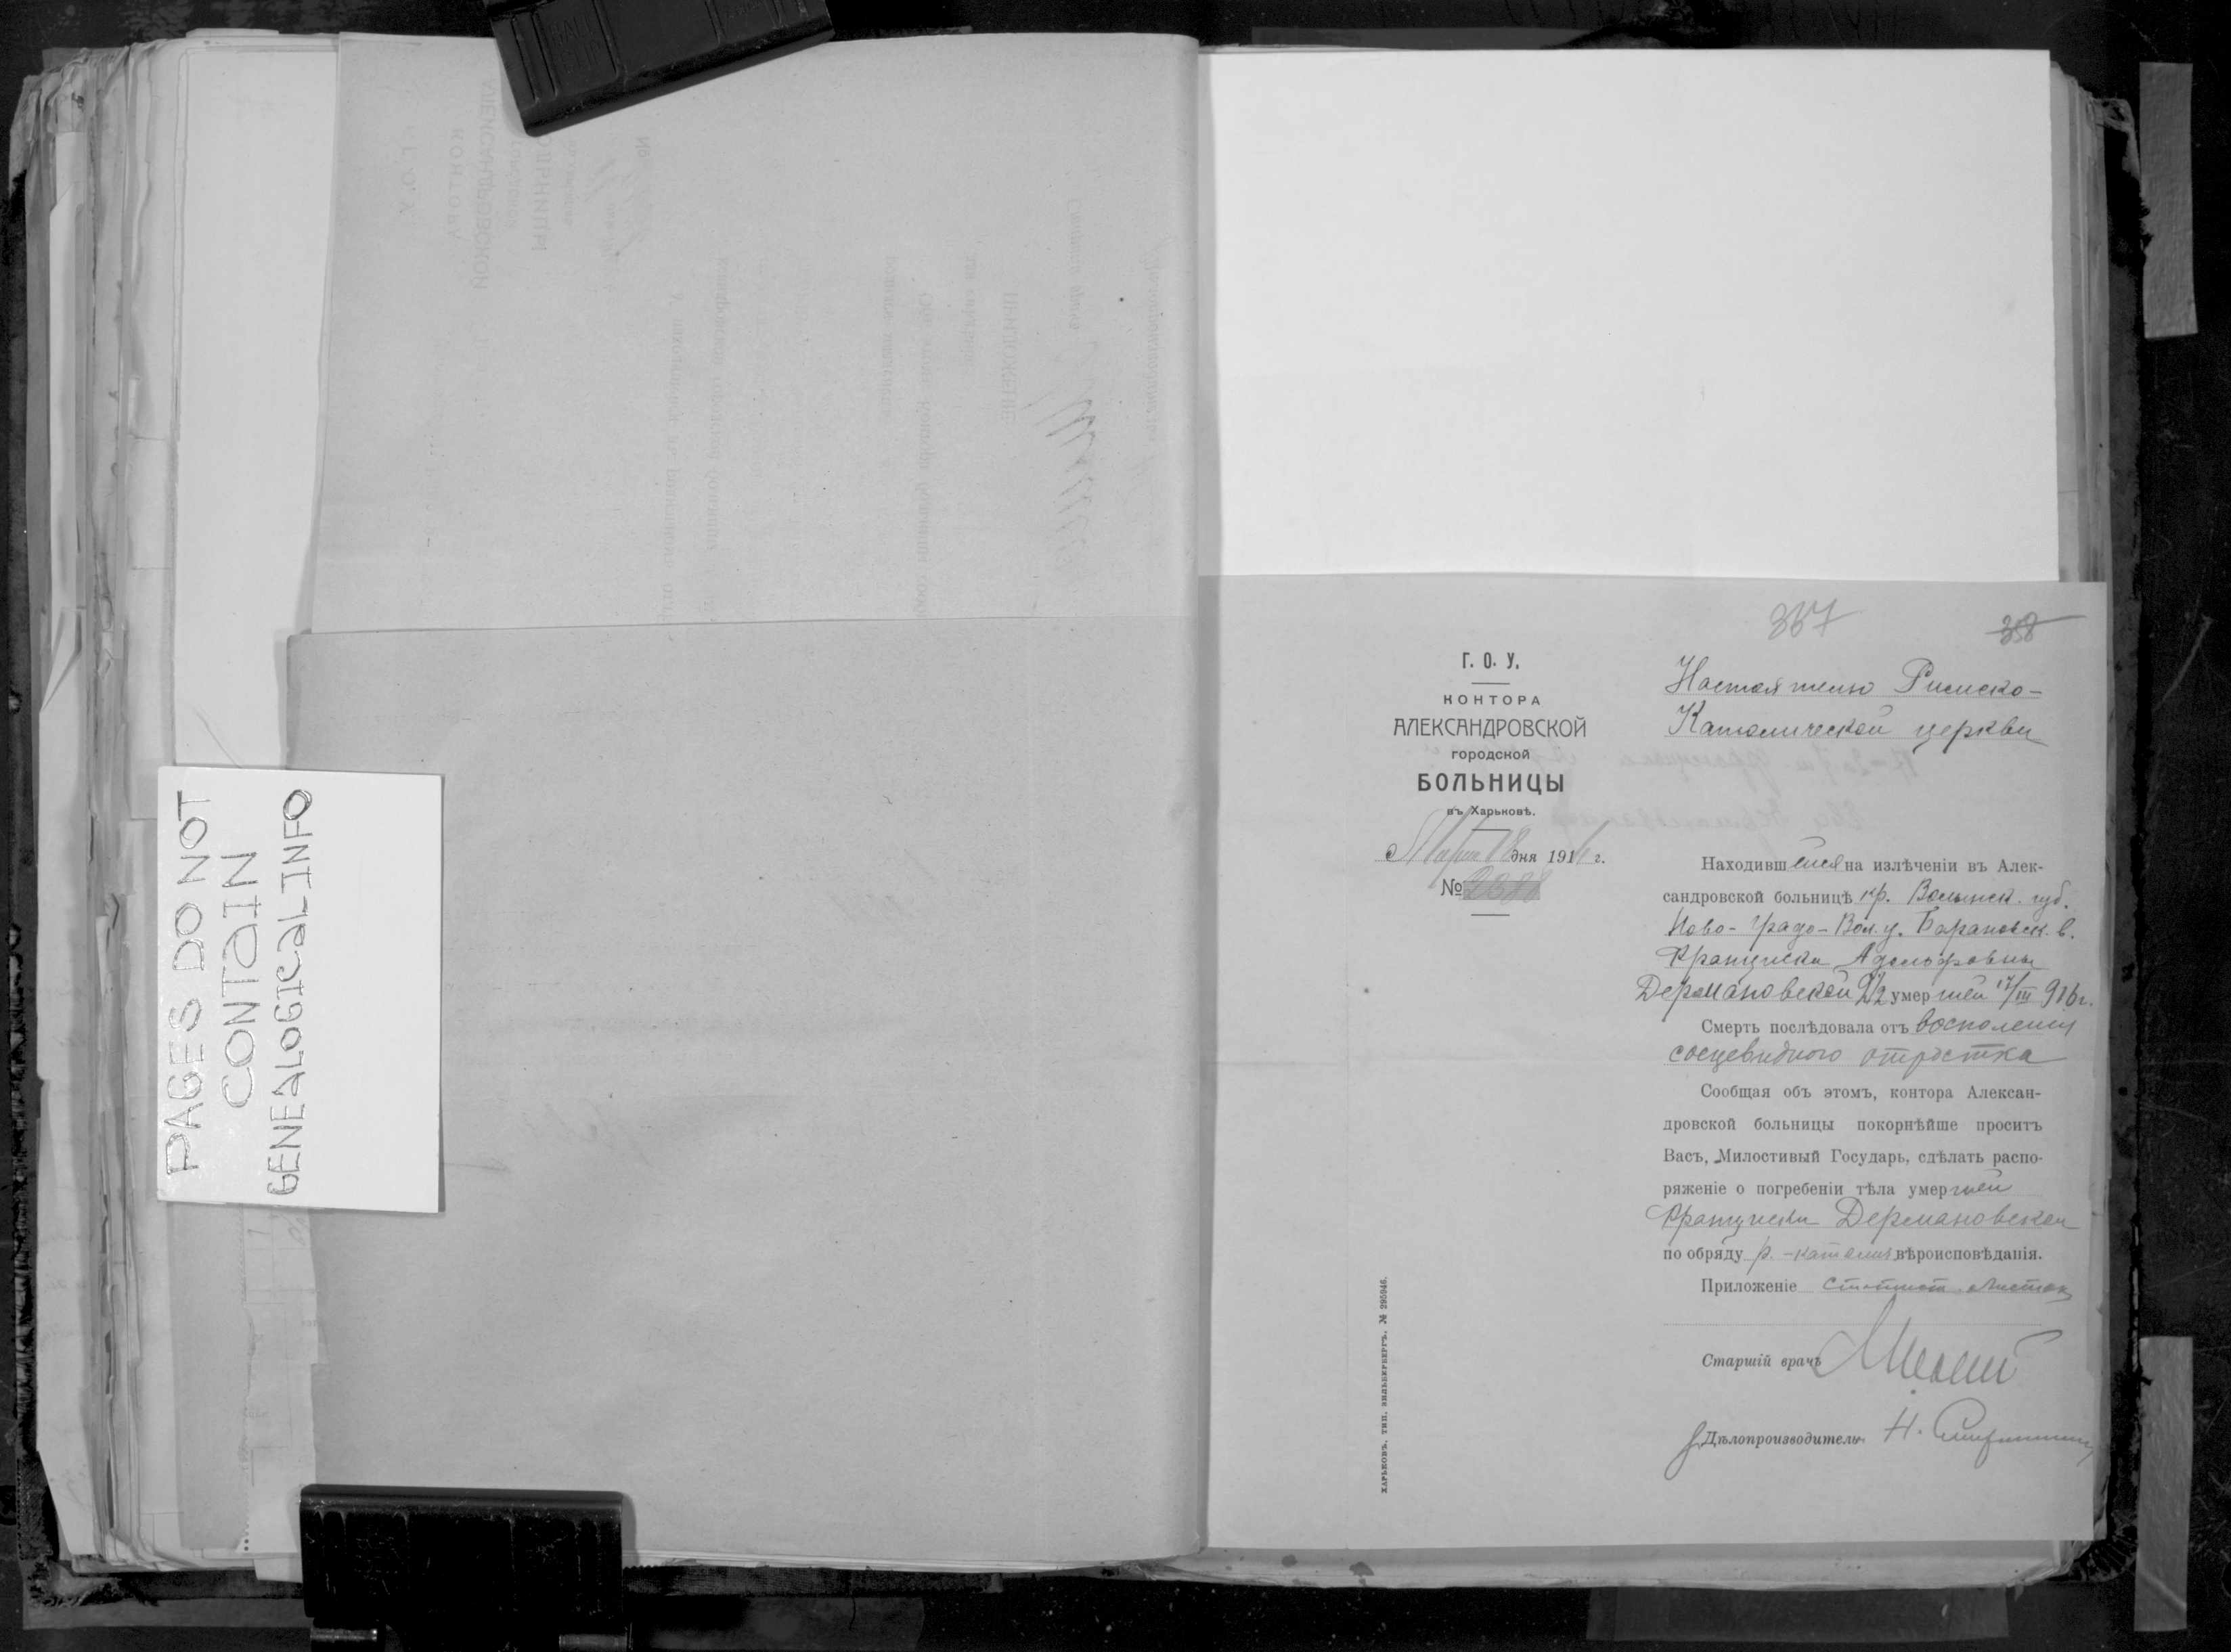 PAGES DO NOT
CONTAIN
GENEALOGICAL INFO
357
358
Г. О. У.
КОНТОРА
АЛЕКСАНДРОВСКОЙ
городской
БОЛЬНИЦЫ
въ Харьковѣ.
Марта 18 дня 1916 г.
№
Настоятелю Римско-
Католической церкви
Находившейся на излѣченіи въ Алек-
сандровской больницѣ кр. Волынск. губ.
Ново-Градо-Вол. у. Барановск. в.
Франциски Адольфовны
Дермановской 2½ умершей 17/III 916 г.
Смерть послѣдовала отъ воспаленія
сосцевидного отростка
Сообщая объ этомъ, контора Алексан-
дровской больницы покорнѣйше проситъ
Васъ, Милостивый Государь, сдѣлать распо-
ряженіе о погребеніи тѣла умершей
Франциски Дермановской
по обряду р.-катол. вѣроисповѣданія.
Приложеніе статист. листок
Старшій врачъ
Дѣлопроизводитель Н.
ХАРЬКОВЪ. ТИП. ЗИЛЬБЕРБЕРГЪ. № 295946.